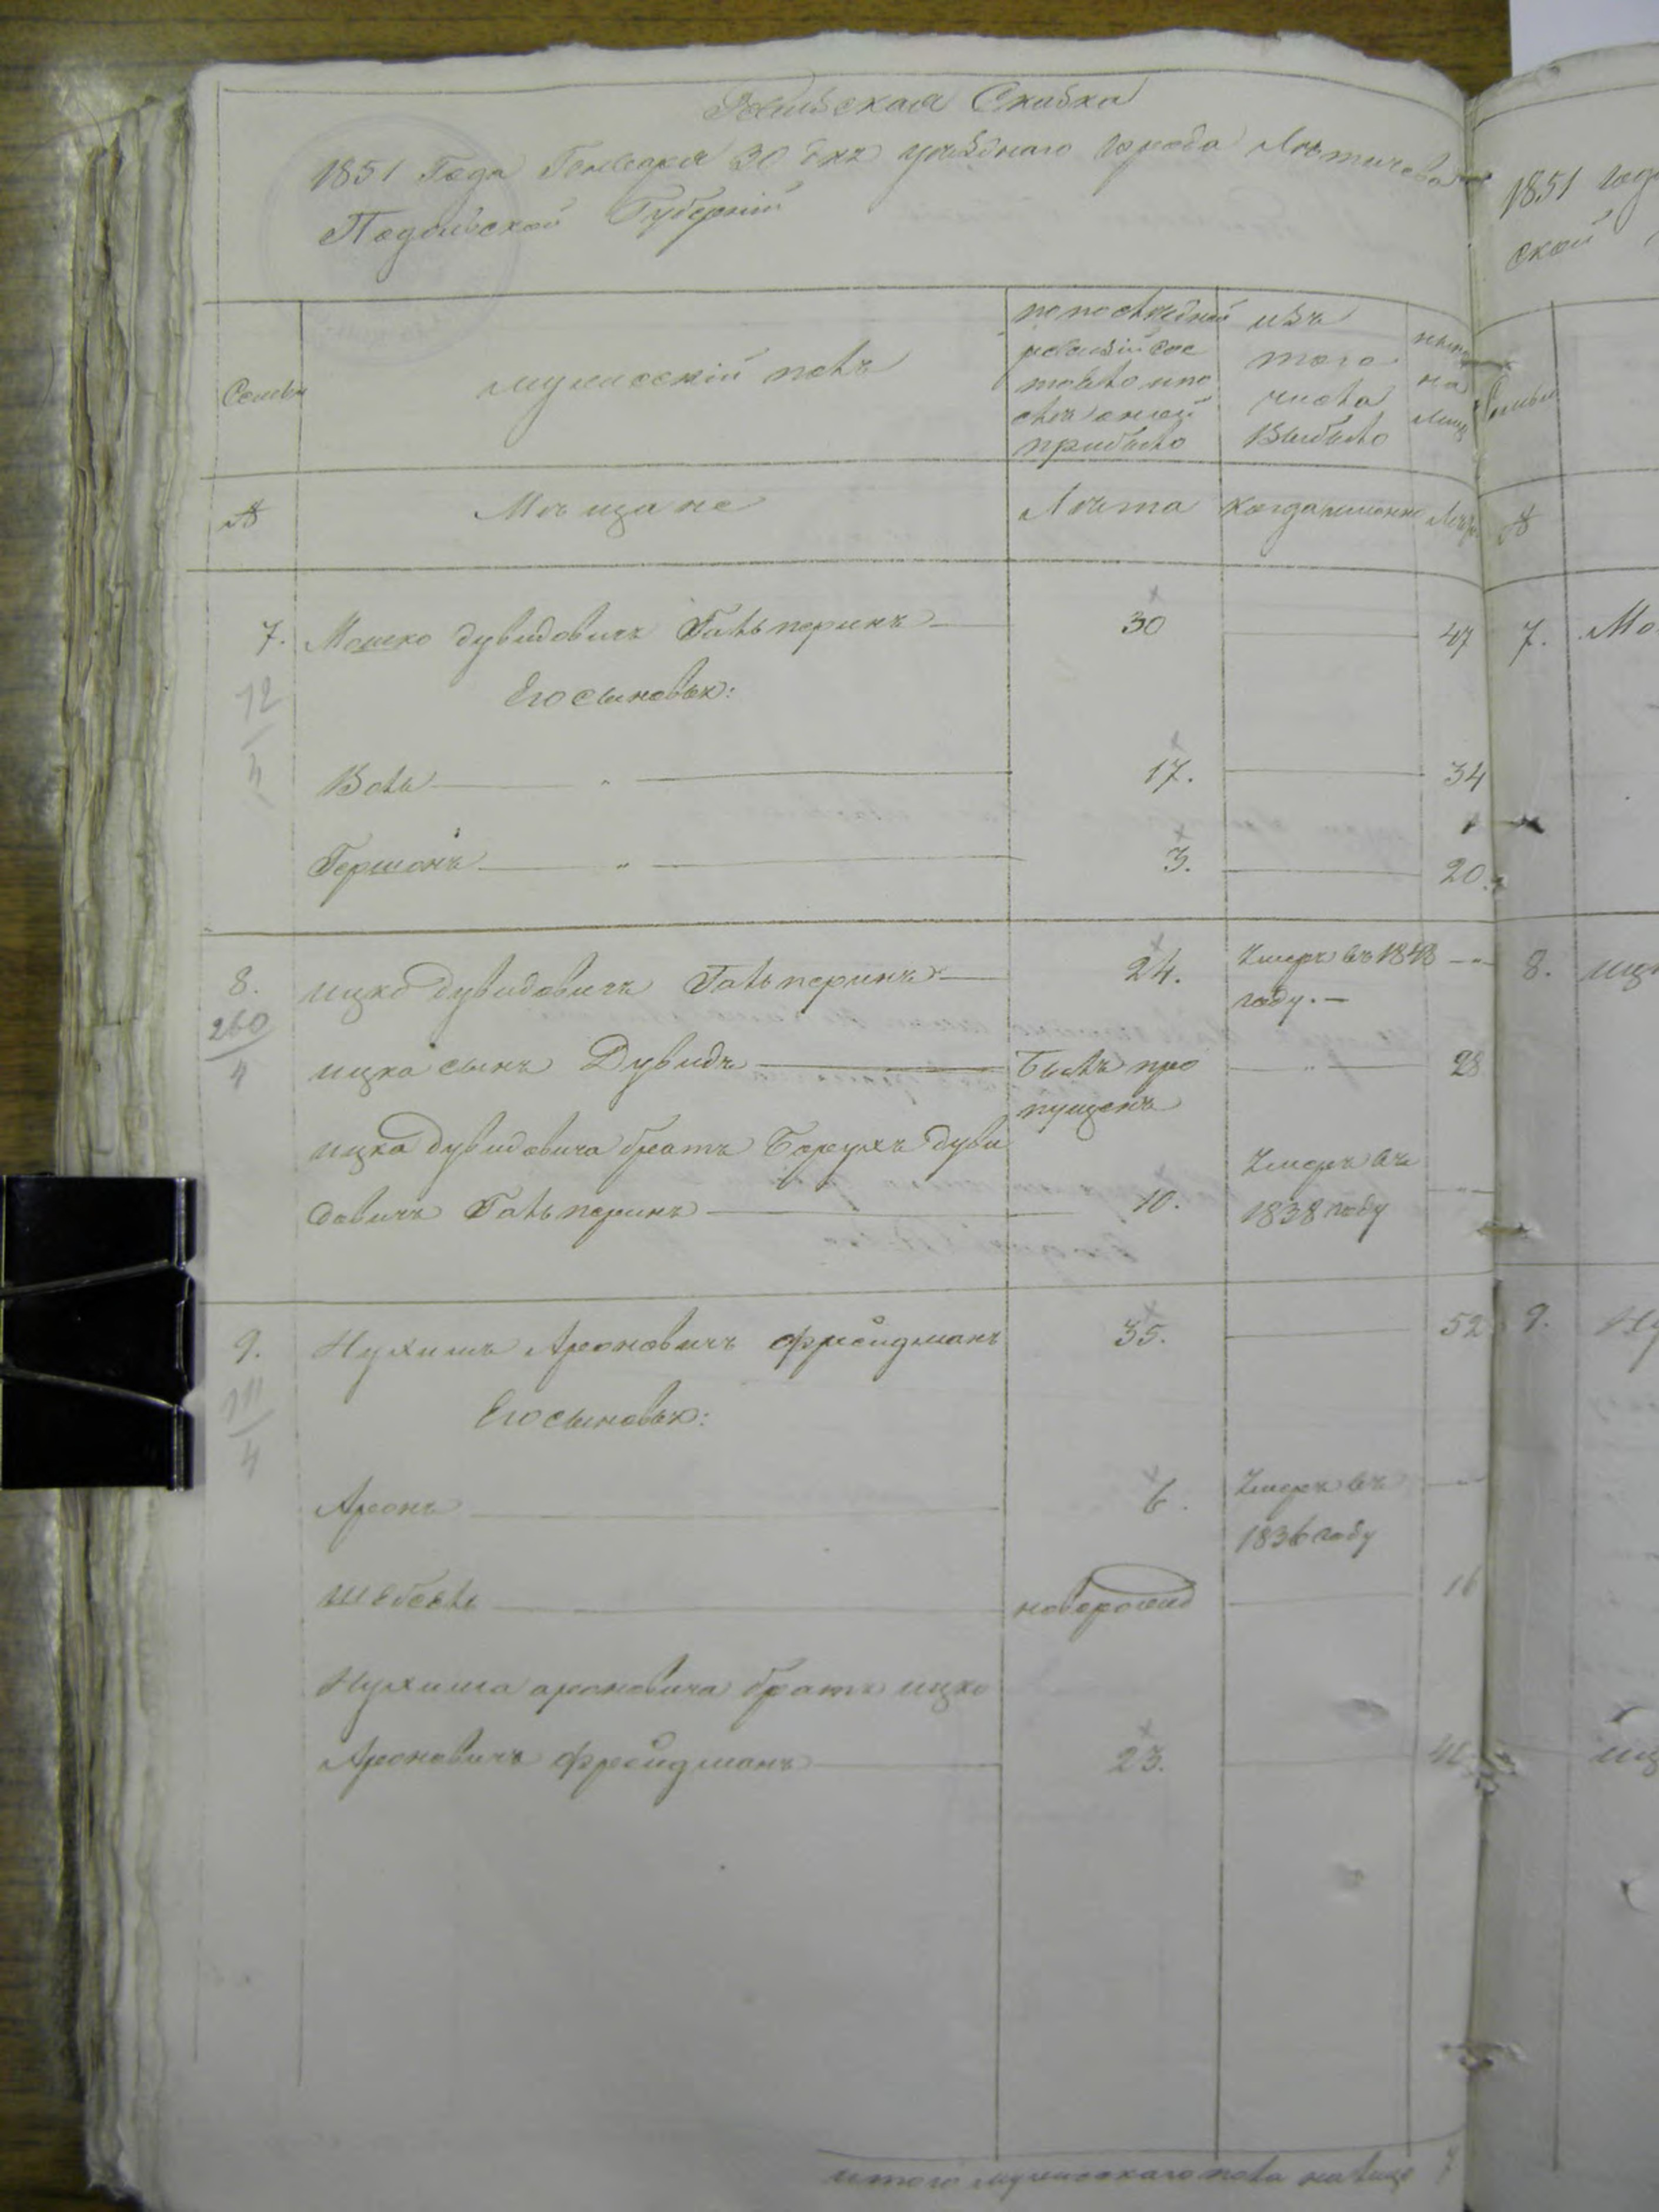 Ревизская Сказка
1851 Года Генваря 30 дня уѣзднаго города Лѣтичева
Подольской Губерніи
Семьи
мужескій полъ
по последней
ревизіи сос
тояло и по
слѣ оной
прибыло
изъ
того
числа
Выбыло
нынѣ
на
Лицо
№
Мѣщане
Лѣта
Когда именно
Лѣта
7. Мошко Дувидовичъ Гальперинъ 30 47
12
4
Его сыновья:
Воль " 17. 34
Гершонъ " 3. 20.
8. ицко Дувидовичъ Гальперинъ 24. Умеръ въ 1843
году.
260
4
ицка сынъ Дувидъ Былъ про " 28
пущенъ
ицка Дувидовича братъ Борухъ Дуви
довичъ Гальперинъ 10. Умеръ въ
1838 году
9. Нухимъ Ароновичъ Фрейдманъ 35. 52
111
4
Его сыновья:
Аронъ 6. Умеръ въ
1836 году
новорожд 16
Нухима ароновича братъ ицко
Ароновичъ Фрейдманъ 23.
итого мужескаго пола на лицо 7
1851 года
ской
Семьи
№
7. Мо
8. ицк
9. Ну
иц